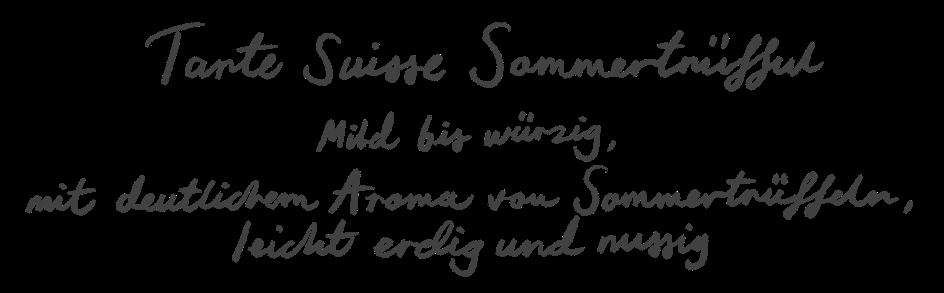 Tante Suisse Sommertrüffel
Mild bis würzig,
mit deutlichem Aroma von Sommertrüffeln,
leicht erdig und nussig